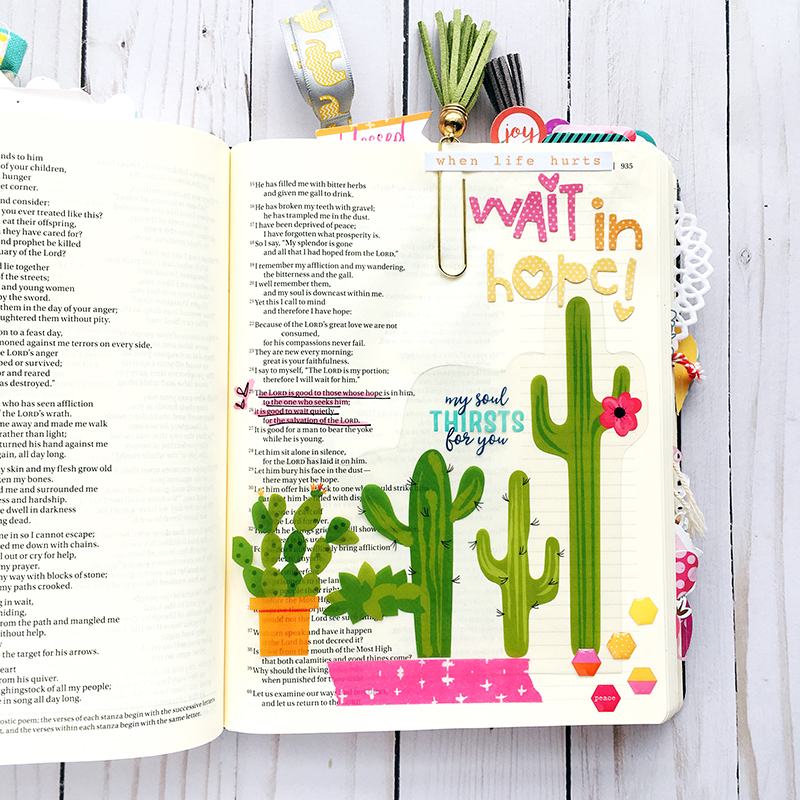 blessed
joy
when life hurts
935
wait in
hope!
nds to him
of your children,
hunger
et corner.
and consider:
you ever treated like this?
eat their offspring,
they have cared for?
and prophet be killed
uary of the Lord?
d lie together
of the streets;
and young women
by the sword.
them in the day of your anger;
ughtered them without pity.
on to a feast day,
moned against me terrors on every side.
e LORD's anger
ped or survived;
or and reared
as destroyed."
who has seen affliction
f the LORD's wrath.
me away and made me walk
rather than light;
turned his hand against me
again, all day long.
y skin and my flesh grow old
ken my bones.
ed me and surrounded me
ess and hardship.
e dwell in darkness
ng dead.
me in so I cannot escape;
ed me down with chains.
ll out or cry for help,
my prayer.
my way with blocks of stone;
my paths crooked.
g in wait,
hiding,
from the path and mangled me
without help.
the target for his arrows.
heart
from his quiver.
ghingstock of all my people;
in song all day long.
ostic poem; the verses of each stanza begin with the successive letters
t, and the verses within each stanza begin with the same letter.
15 He has filled me with bitter herbs
and given me gall to drink.
16 He has broken my teeth with gravel;
he has trampled me in the dust.
17 I have been deprived of peace;
I have forgotten what prosperity is.
18 So I say, "My splendor is gone
and all that I had hoped from the LORD."
19 I remember my affliction and my wandering,
the bitterness and the gall.
20 I well remember them,
and my soul is downcast within me.
21 Yet this I call to mind
and therefore I have hope:
22 Because of the LORD's great love we are not
consumed,
for his compassions never fail.
23 They are new every morning;
great is your faithfulness.
24 I say to myself, "The LORD is my portion;
therefore I will wait for him."
25 The LORD is good to those whose hope is in him,
to the one who seeks him;
26 it is good to wait quietly
for the salvation of the LORD.
27 It is good for a man to bear the yoke
while he is young.
28 Let him sit alone in silence,
for the LORD has laid it on him.
29 Let him bury his face in the dust—
there may yet be hope.
30 Let him offer his to one who would strike
him be filled with
is cast off
the Lord forever.
he brings grief show
For ly bring affliction
in the land
people their
could not the Lord see
37 Who can speak and have it happen
the Lord has not decreed it?
38 Is from the mouth of the Most High
that both calamities and good things come?
39 Why should the living
when punished for
40 Let us examine our ways
and let us return to the
my soul
THIRSTS
for you
peace